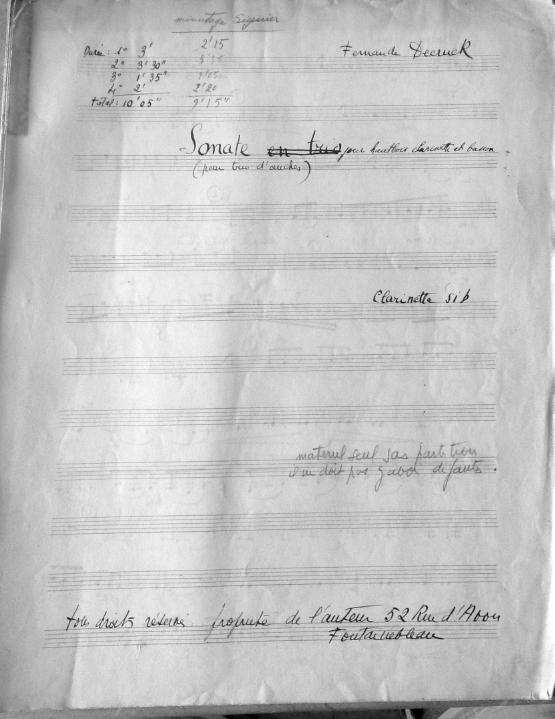 minutage Sigurier
Durée: 1° 3' 2'15
2° 3'30"
3° 1'35"
4° 2' 2'20
total: 10'05" 9'15"
Fernande Decruck
Sonate en trio pour hautbois clarinette et basson
(pour trio d'anches)
Clarinette Sib
materiel seul pas partition
il ne doit pas y avoir de fautes.
tous droits réservés propriété de l'auteur 52 Rue d'Avon
Fontainebleau